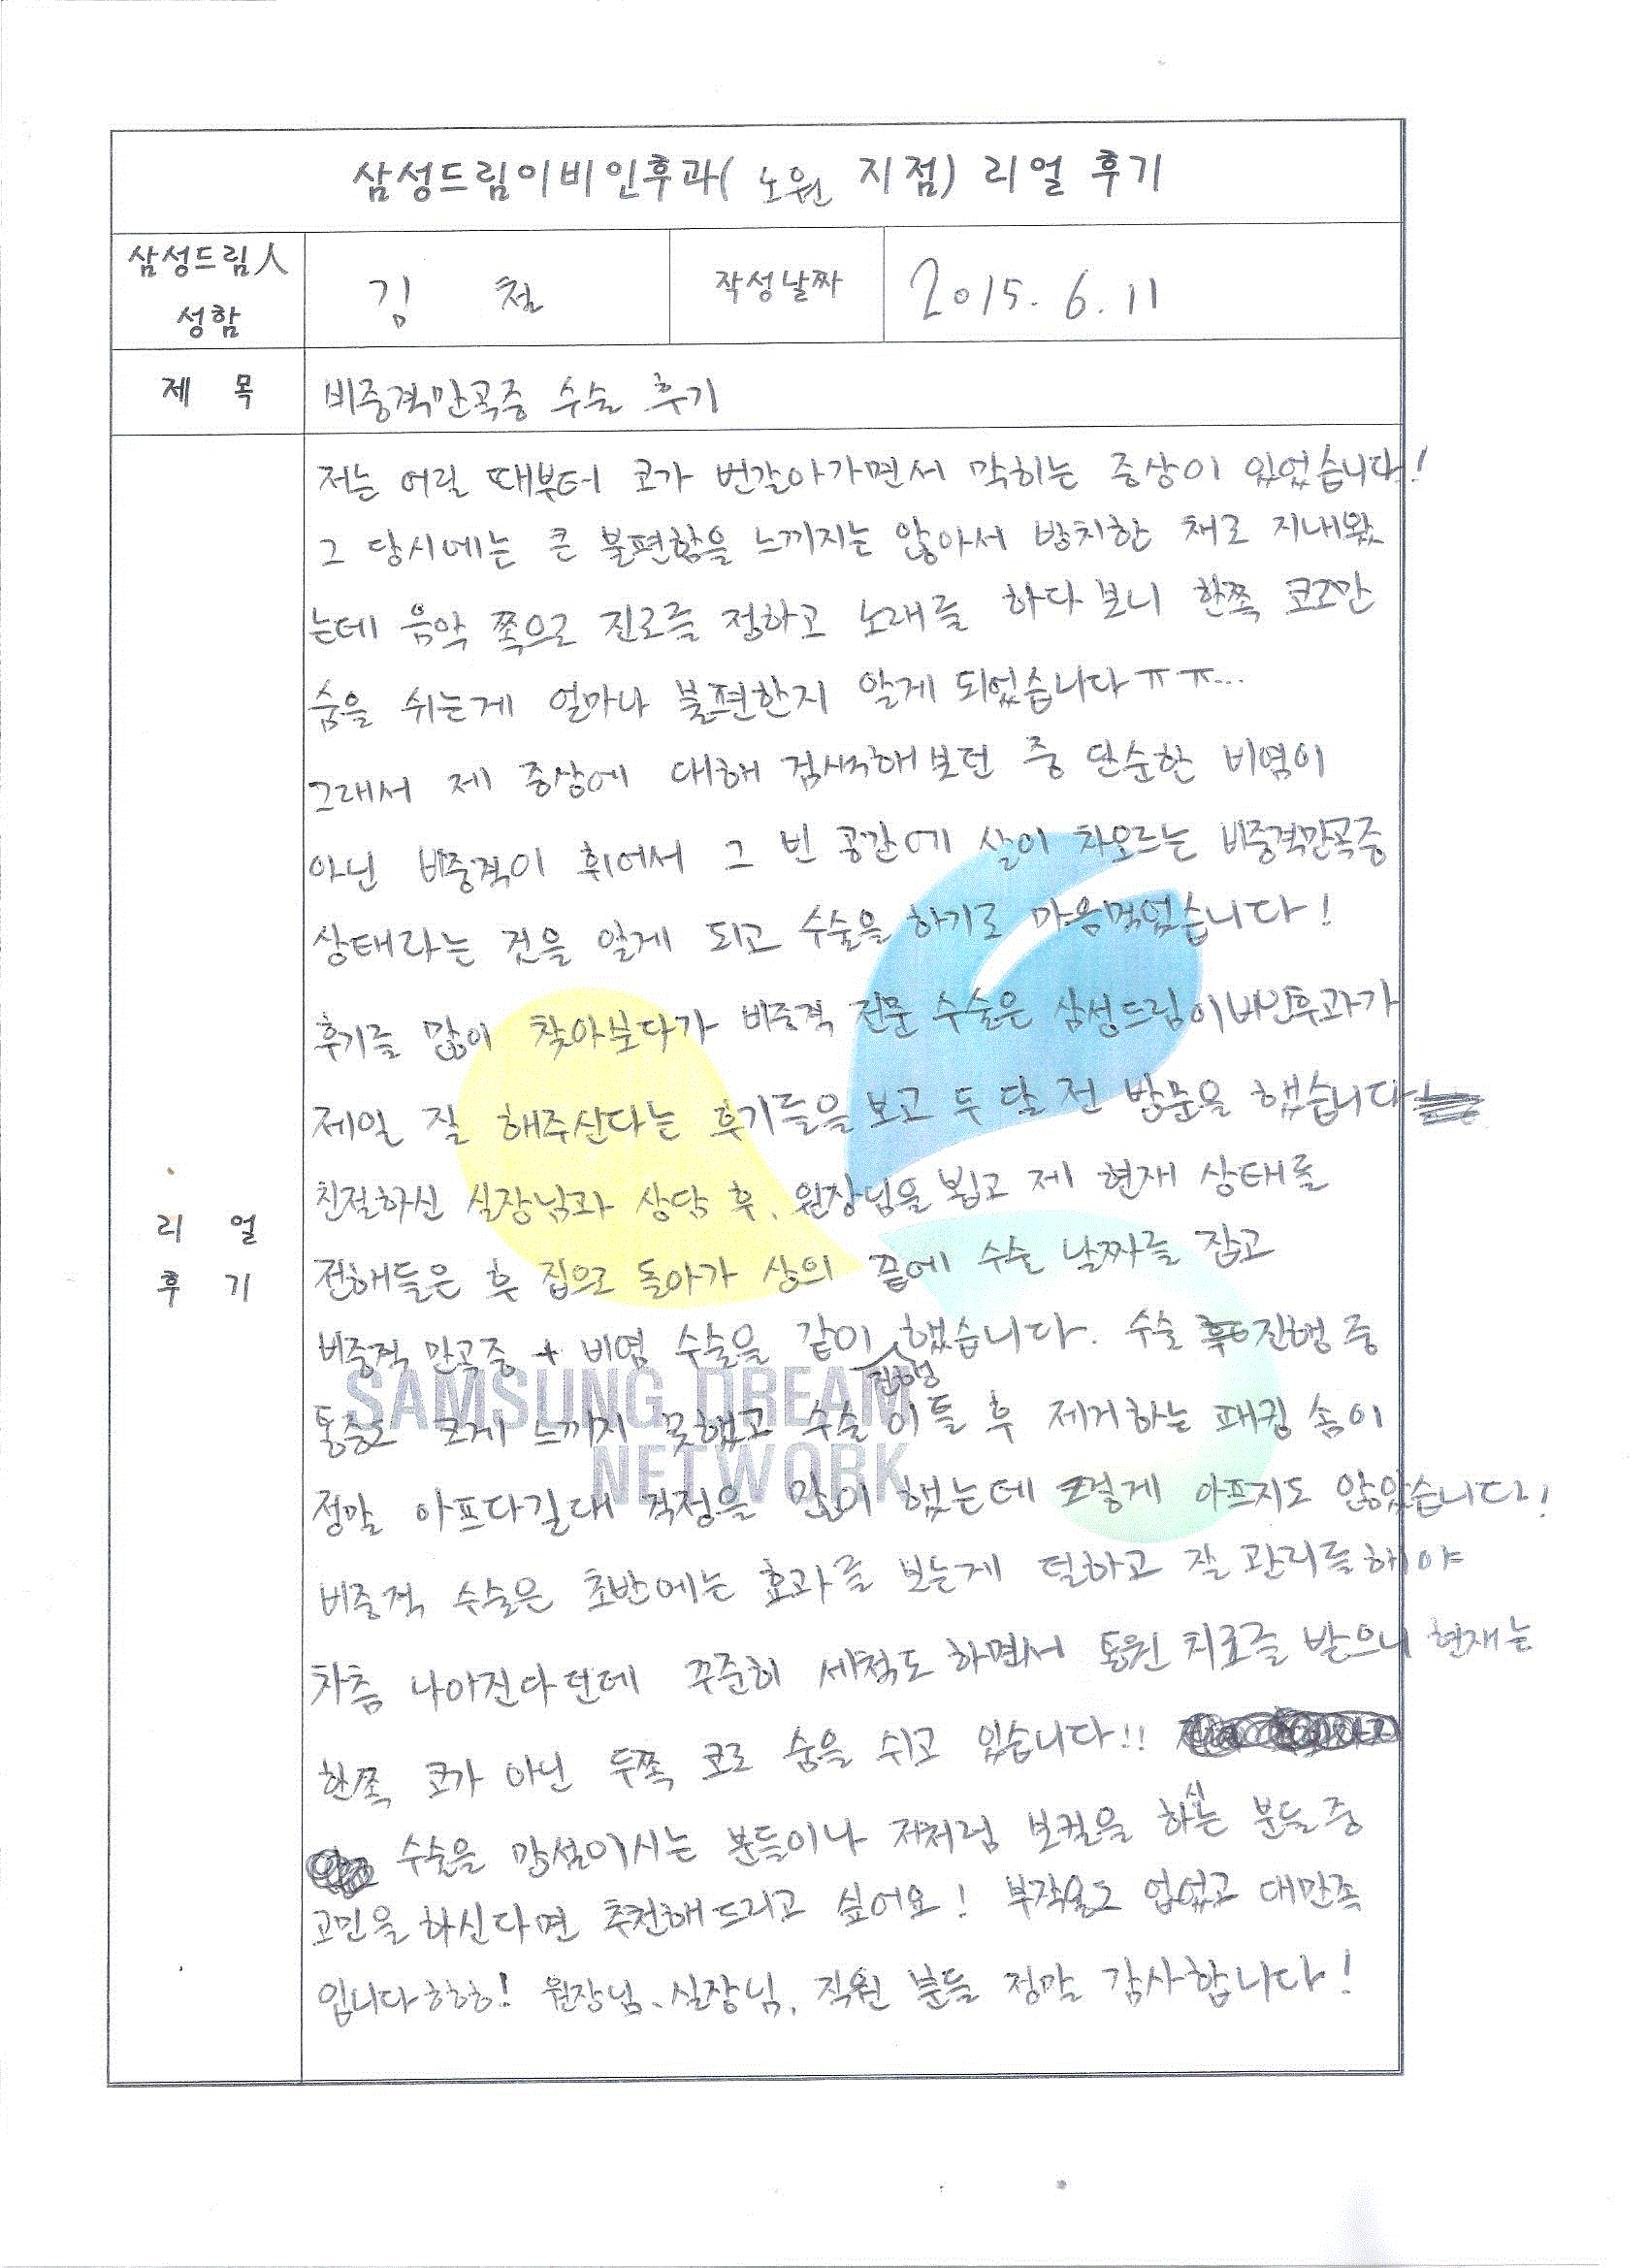 삼성드림이비인후과( 노원 지점) 리얼 후기
삼성드림人
성함
김 철
작성날짜
2015. 6. 11
제 목
비중격만곡증 수술 후기
리 얼
후 기
저는 어릴 때부터 코가 번갈아가면서 막히는 증상이 있었습니다!
그 당시에는 큰 불편함을 느끼지는 않아서 방치한 채로 지내왔
는데 음악 쪽으로 진로를 정하고 노래를 하다보니 한쪽 코로만
숨을 쉬는게 얼마나 불편한지 알게 되었습니다ㅠㅠ...
그래서 제 증상에 대해 검색해보던 중 단순한 비염이
아닌 비중격이 휘어서 그 빈 공간에 살이 차오르는 비중격만곡증
상태라는 것을 알게 되고 수술을 하기로 마음먹었습니다!
후기를 많이 찾아보다가 비중격 전문 수술은 삼성드림이비인후과가
제일 잘 해주신다는 후기들을 보고 두 달 전 방문을 했습니다
친절하신 실장님과 상담 후, 원장님을 뵙고 제 현재 상태를
전해들은 후 집으로 돌아가 상의 끝에 수술 날짜를 잡고
비중격 만곡증 + 비염 수술을 같이 진행했습니다. 수술 진행 중
통증도 크게 느끼지 못했고 수술 이틀 후 제거하는 패킹 솜이
정말 아프다길래 걱정을 많이 했는데 그렇게 아프지도 않았습니다!
비중격 수술은 초반에는 효과를 보는게 덜하고 잘 관리를해야
차츰 나아진다던데 꾸준히 세척도 하면서 통원 치료를 받으니 현재는
한쪽 코가 아닌 두쪽 코로 숨을 쉬고 있습니다!!
수술을 망설이시는 분들이나 저처럼 보컬을 하시는 분들중
고민을 하신다면 추천해드리고 싶어요! 부작용도 없었고 대만족
입니다ㅎㅎㅎ! 원장님、실장님, 직원 분들 정말 감사합니다!
SAMSUNG DREAM
NETWORK